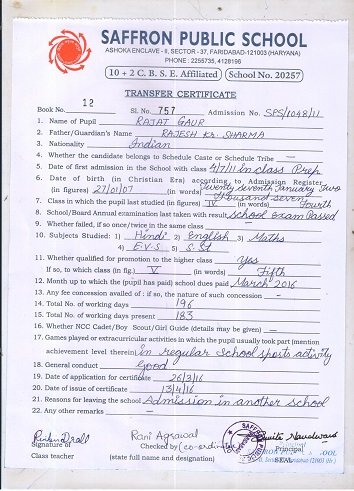 SAFFRON PUBLIC SCHOOL
ASHOKA ENCLAVE - II, SECTOR - 37, FARIDABAD-121003 (HARYANA)
PHONE : 2255735, 4128196
10 + 2 C. B. S. E. Affiliated School No. 20257
TRANSFER CERTIFICATE
Book No. 12 Sl. No. 757 Admission No. SPS/1048/11
1. Name of Pupil RAJAT GAUR
2. Father/Guardian's Name RAJESH Kr. SHARMA
3. Nationality Indian
4. Whether the candidate belongs to Schedule Caste or Schedule Tribe —
5. Date of first admission in the School with class 4/7/11 in class Prep
6. Date of birth (in Christian Era) according to Admission Register
(in figures) 27/01/07 (in words) Twenty Seventh January Two thousand seven
7. Class in which the pupil last studied (in figures) IV (in words) Fourth
8. School/Board Annual examination last taken with result School exam Passed
9. Whether failed, if so once/twice in the same class
10. Subjects Studied: 1) Hindi 2) English 3) Maths
4) E.V.S 5) S.St
11. Whether qualified for promotion to the higher class yes
If so, to which class (in fig.) V (in words) Fifth
12. Month up to which the (pupil has paid) school dues paid March 2016
13. Any fee concession availed of : if so, the nature of such concession —
14. Total No. of working days 196
15. Total No. of working days present 183
16. Whether NCC Cadet/Boy Scout/Girl Guide (details may be given) —
17. Games played or extracurricular activities in which the pupil usually took part (mention
achievement level therein) in regular School sports activity
18. General conduct Good
19. Date of application for certificate 26/3/16
20. Date of issue of certificate 13/4/16
21. Reasons for leaving the school Admission in another school
22. Any other remarks —
Rani Agrawal
Signature of Checked by (co-ordinator) Principal
Class teacher (state full name and designation) SEAL